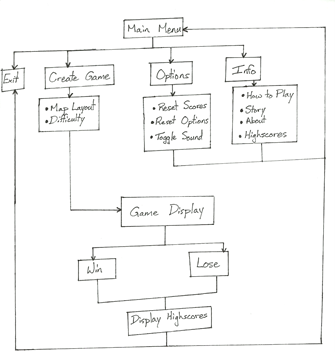 Main Menu
Exit
Create Game
Options
Info
• Map Layout
• Difficulty
• Reset Scores
• Reset Options
• Toggle Sound
• How to Play
• Story
• About
• Highscores
Game Display
Win
Lose
Display Highscores